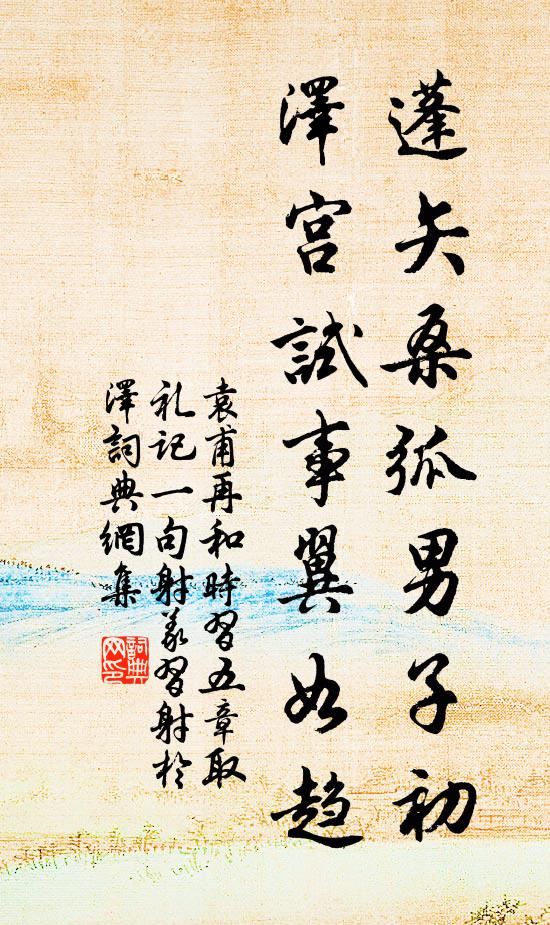 蓬矢桑弧男子初
澤宮試事翼如趨
袁甫再和時習五章取
礼记一句射義習射於
澤詞典網集
詞典
网印